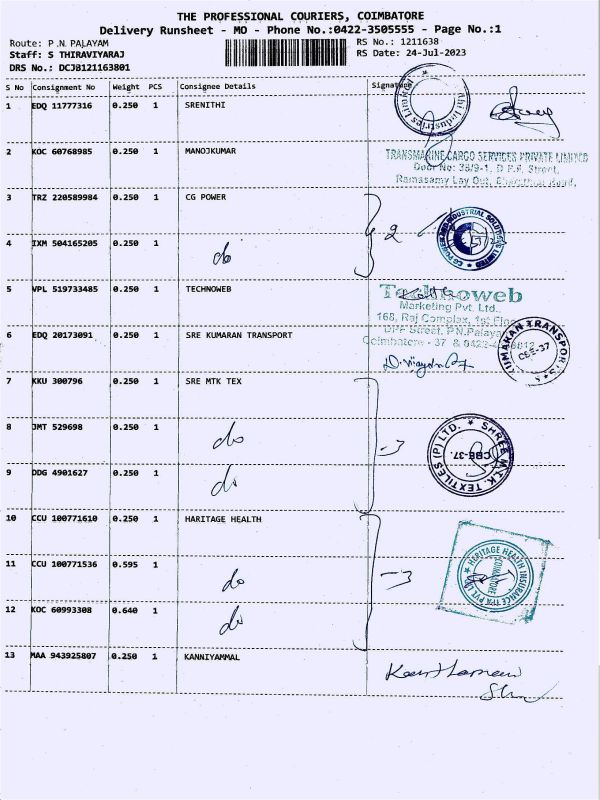 THE PROFESSIONAL COURIERS, COIMBATORE
Delivery Runsheet - MO - Phone No.:0422-3505555 - Page No.:1
Route: P.N. PALAYAM
RS No.: 1211638
Staff: S THIRAVIYARAJ
RS Date: 24-Jul-2023
DRS No.: DCJB121163801
S No Consignment No Weight PCS Consignee Details Signature
1 EDQ 11777316 0.250 1 SRENITHI
2 KOC 60768985 0.250 1 MANOJKUMAR
TRANSMARINE CARGO SERVICES PRIVATE LIMITED
Door No: 38/9-1, D.P.F. Street,
Ramasamy Lay Out,
3 TRZ 220589984 0.250 1 CG POWER
2
4 IXM 504165205 0.250 1 do
5 VPL 519733485 0.250 1 TECHNOWEB
Technoweb
Marketing Pvt. Ltd.,
168, Raj Complex, 1st Floor
DPF Street, P.N.Palayam
Coimbatore - 37
6 EDQ 20173091 0.250 1 SRE KUMARAN TRANSPORT
KUMARAN TRANSPORTS
CBE-37
7 KKU 300796 0.250 1 SRE MTK TEX
8 JMT 529698 0.250 1 do
-3
SHREE M.T.K. TEXTILES (P) LTD.
CBE-37.
9 DDG 4901627 0.250 1 do
10 CCU 100771610 0.250 1 HARITAGE HEALTH
11 CCU 100771536 0.595 1 do
-3
HERITAGE HEALTH INSURANCE TPA PVT. LTD.
COIMBATORE
12 KOC 60993308 0.640 1 do
13 MAA 943925807 0.250 1 KANNIYAMMAL